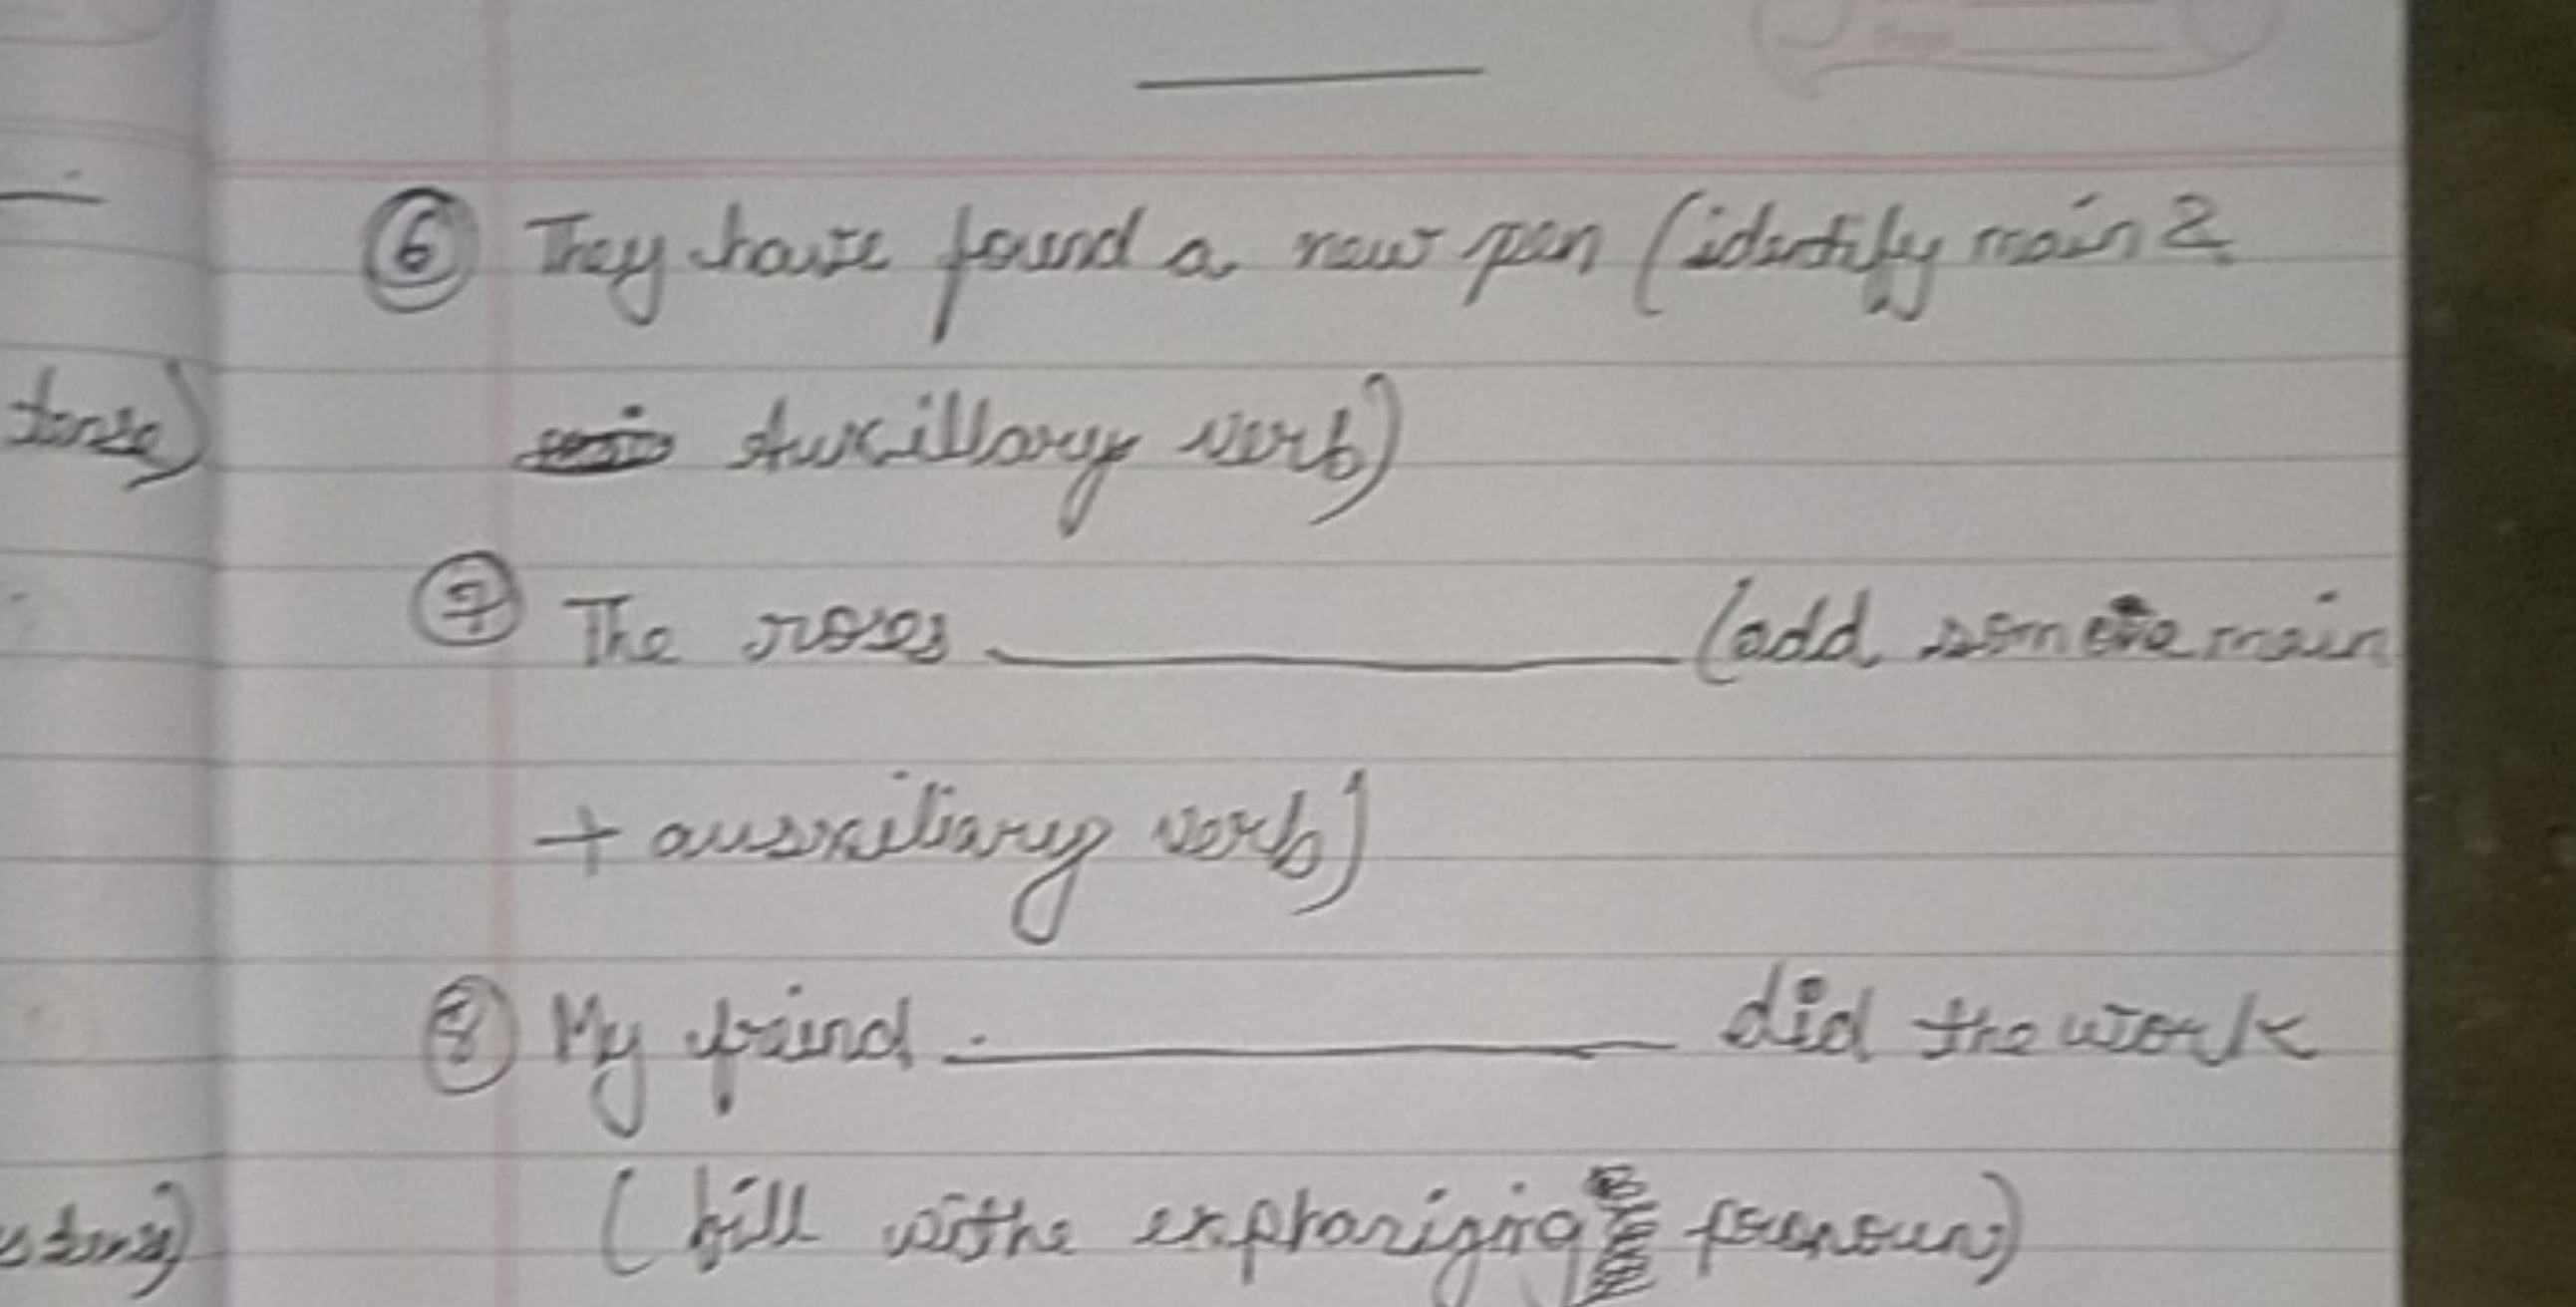 ⑥ They have found a new pen (identify main &
Auxillary verb)
tense)
⑦ The roses ____________ (add some main
+ auxiliary verb)
⑧ My friend ____________ did the work
(fill withe emphasizing pronoun)